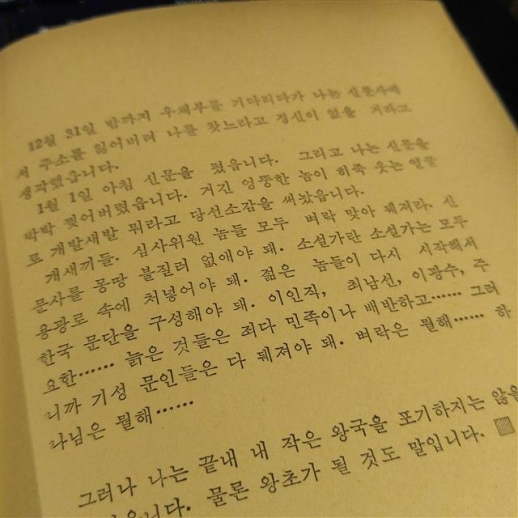 12월 31일 밤까지 우체부를 기다리다가 나는 신문사에
서 주소를 잃어버려 나를 찾느라고 정신이 없을 거라고
생각했읍니다.
1월 1일 아침 신문을 폈읍니다. 그리고 나는 신문을
박박 찢어버렸읍니다. 거긴 엉뚱한 놈이 히죽 웃는 얼굴
로 개발새발 뭐라고 당선소감을 써놨읍니다.
개새끼들. 심사위원 놈들 모두 벼락 맞아 뒈져라. 신
문사를 몽땅 불질러 없애야 돼. 소설가란 소설가는 모두
용광로 속에 처넣어야 돼. 젊은 놈들이 다시 시작해서
한국 문단을 구성해야 돼. 이인직, 최남선, 이광수, 주
요한…… 늙은 것들은 죄다 민족이나 배반하고…… 그러
니까 기성 문인들은 다 뒈져야 돼. 벼락은 뭘해…… 하
나님은 뭘해……
그러나 나는 끝내 내 작은 왕국을 포기하지는 않을
물론 왕초가 될 것도 말입니다. ▨